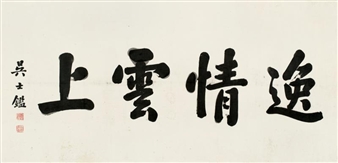 逸情雲上
吳士鑑